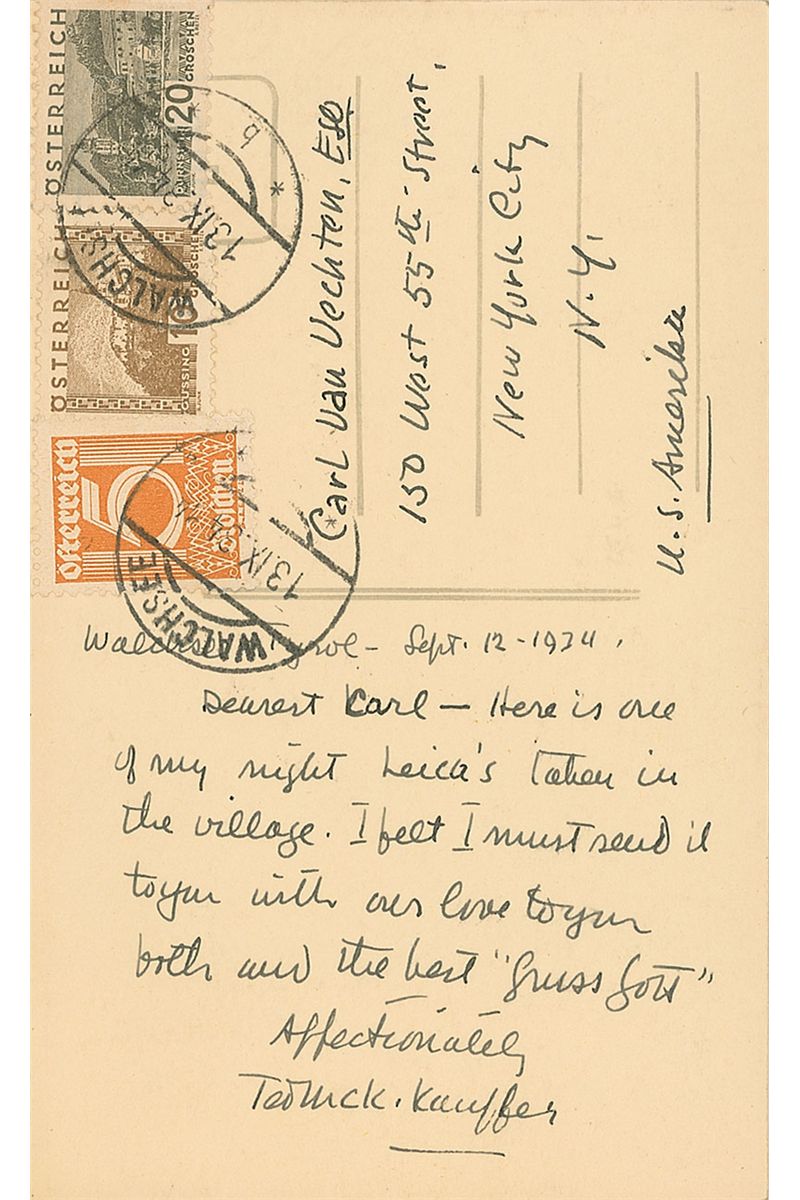 ÖSTERREICH
20
GROSCHEN
DÜRNSTEIN
ÖSTERREICH
10
GROSCHEN
GÜSSING
Österreich
5
Groschen
WALCHSEE
13.IX.34
* b *
WALCHSEE
13.IX.34
Carl Van Vechten, Esq
150 West 55th Street,
New York City
N.Y.
U.S. Amerika
Walchsee Tyrol - Sept. 12 - 1934.
Dearest Karl — Here is one
of my night Leica's taken in
the village. I felt I must send it
to you with our love to you
both and the best "Gruss Gott"
Affectionately
Ted McK. Kauffer